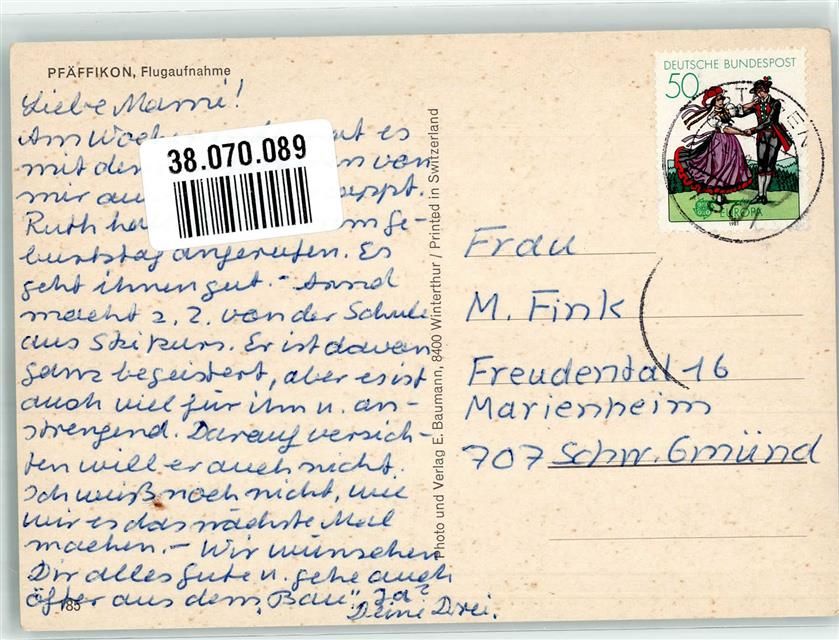 PFÄFFIKON, Flugaufnahme
Liebe Mami!
Am es
mit von
mir
Ruth ge-
burtstag angerufen. Es
geht ihnen gut. -
macht z. Z. von der Schule
aus Skikurs. Er ist davon
ganz begeistert, aber es ist
auch viel für ihn u. an-
strengend. Darauf verzich-
ten will er auch nicht.
Ich weiß noch nicht, wie
wir es das nächste Mal
machen. - Wir wünschen
Dir alles Gute u. gehe auch
öfter aus dem "Bau". Ja?
Deine Drei.
185
38.070.089
Photo und Verlag E. Baumann, 8400 Winterthur / Printed in Switzerland
DEUTSCHE BUNDESPOST
50
EUROPA
1981
Frau
M. Fink
Freudental 16
Marienheim
707 Schw. Gmünd